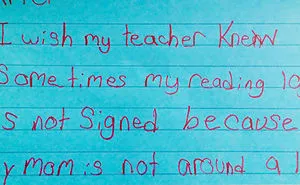 I wish my teacher Knew
Sometimes my reading lo
s not Signed because
y mom is not around a l